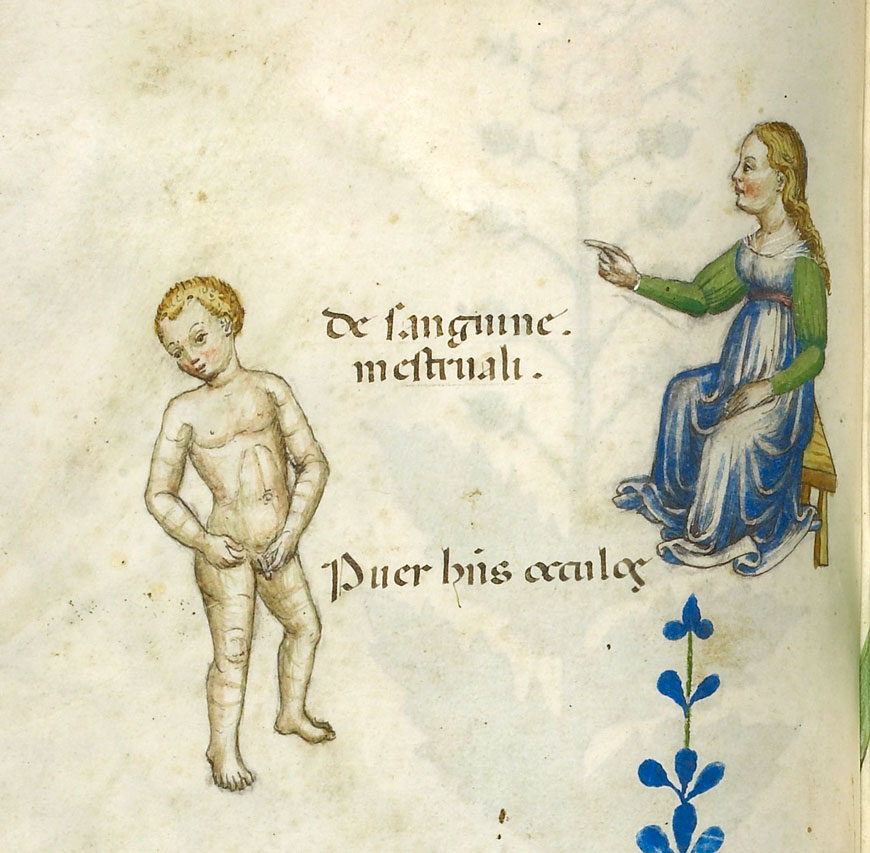 de sanguine.
mestruali.
Puer hñs occuloꝝ